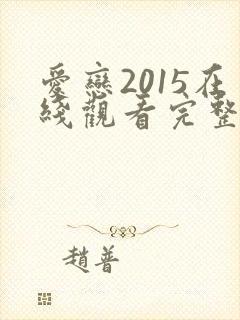 愛戀2015在
綫觀看完整
趙普